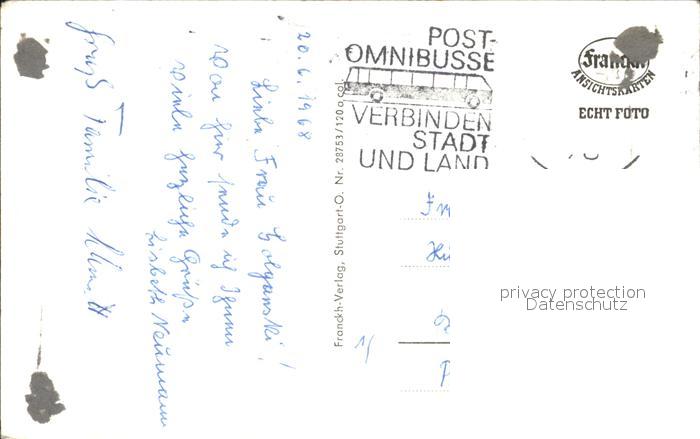 20.6.1968
Liebe Frau
Von hier sende ich Ihnen
viele herzliche Grüße
Lisbeth Neumann
Gruß Familie
POST-
OMNIBUSSE
VERBINDEN
STADT
UND LAND
Franckh
ANSICHTSKARTEN
ECHT FOTO
Franckh-Verlag, Stuttgart-O. Nr. 28753/120 a col.
privacy protection
Datenschutz